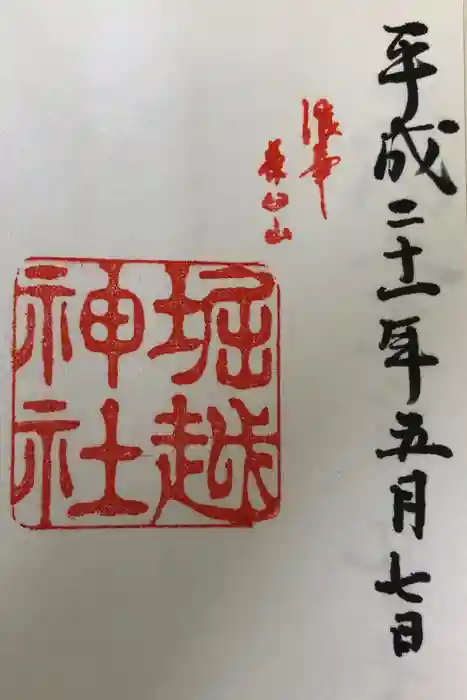 平成二十一年五月七日
浪華
茶臼山
堀越
神社